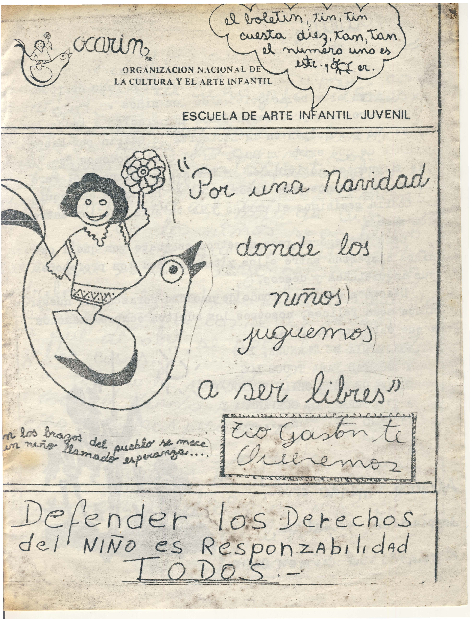 ocarin
ORGANIZACION NACIONAL DE
LA CULTURA Y EL ARTE INFANTIL
el boletin, tin, tin
cuesta diez, tan, tan
el numero uno es
este. y
er.
ESCUELA DE ARTE INFANTIL JUVENIL
"Por una Navidad
donde los
niños
juguemos
a ser libres"
n los brazos del pueblo se mece
un niño llamado esperanza....
tio Gaston te
Queremos
Defender los Derechos
del NIÑO es Responzabilidad
TODOS.-